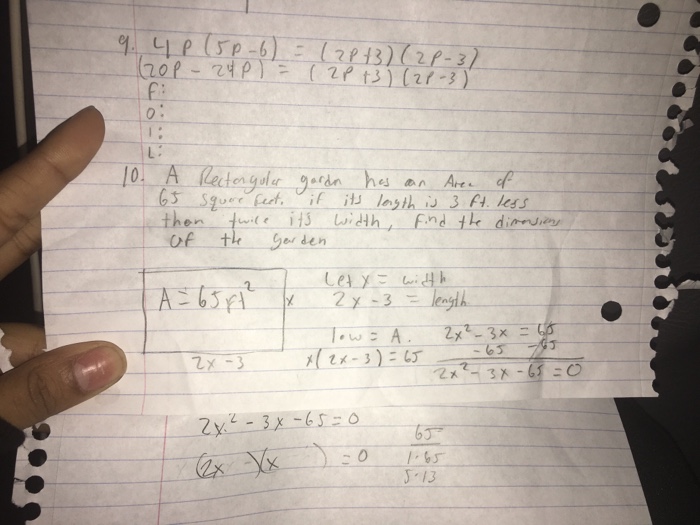 9. 4p (5p-6) = (2p+3)(2p-3)
(20p - 24p) = (2p+3)(2p-3)
F:
O:
I:
L:
10. A Rectangular garden has an Area of
65 square feet. if its length is 3 ft. less
than twice its width, find the dimensions
of the garden
A = 65 ft²
x
2x-3
Let x = width
2x-3 = length
l·w = A.
x(2x-3) = 65
2x²-3x = 65
-65 -65
2x²-3x-65 = 0
2x²-3x-65=0
(2x - )(x ) = 0
65
1·65
5·13